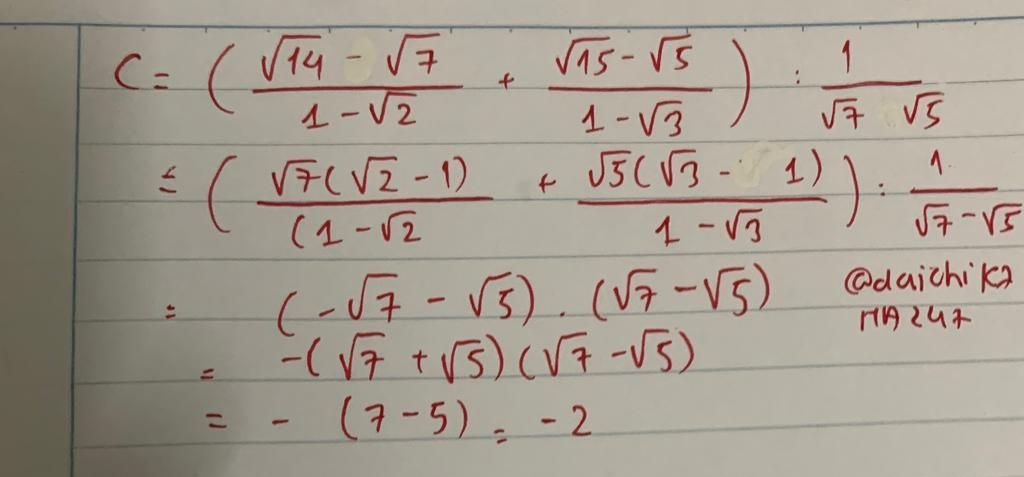 C = ( (√14 - √7)/(1 - √2) + (√15 - √5)/(1 - √3) ) : 1/(√7 √5)
= ( √7(√2 - 1)/((1 - √2) + √5(√3 - 1)/(1 - √3) ) : 1/(√7 - √5)
= (-√7 - √5) . (√7 - √5)
@daichika
HA247
= -(√7 + √5)(√7 - √5)
= - (7 - 5) = -2